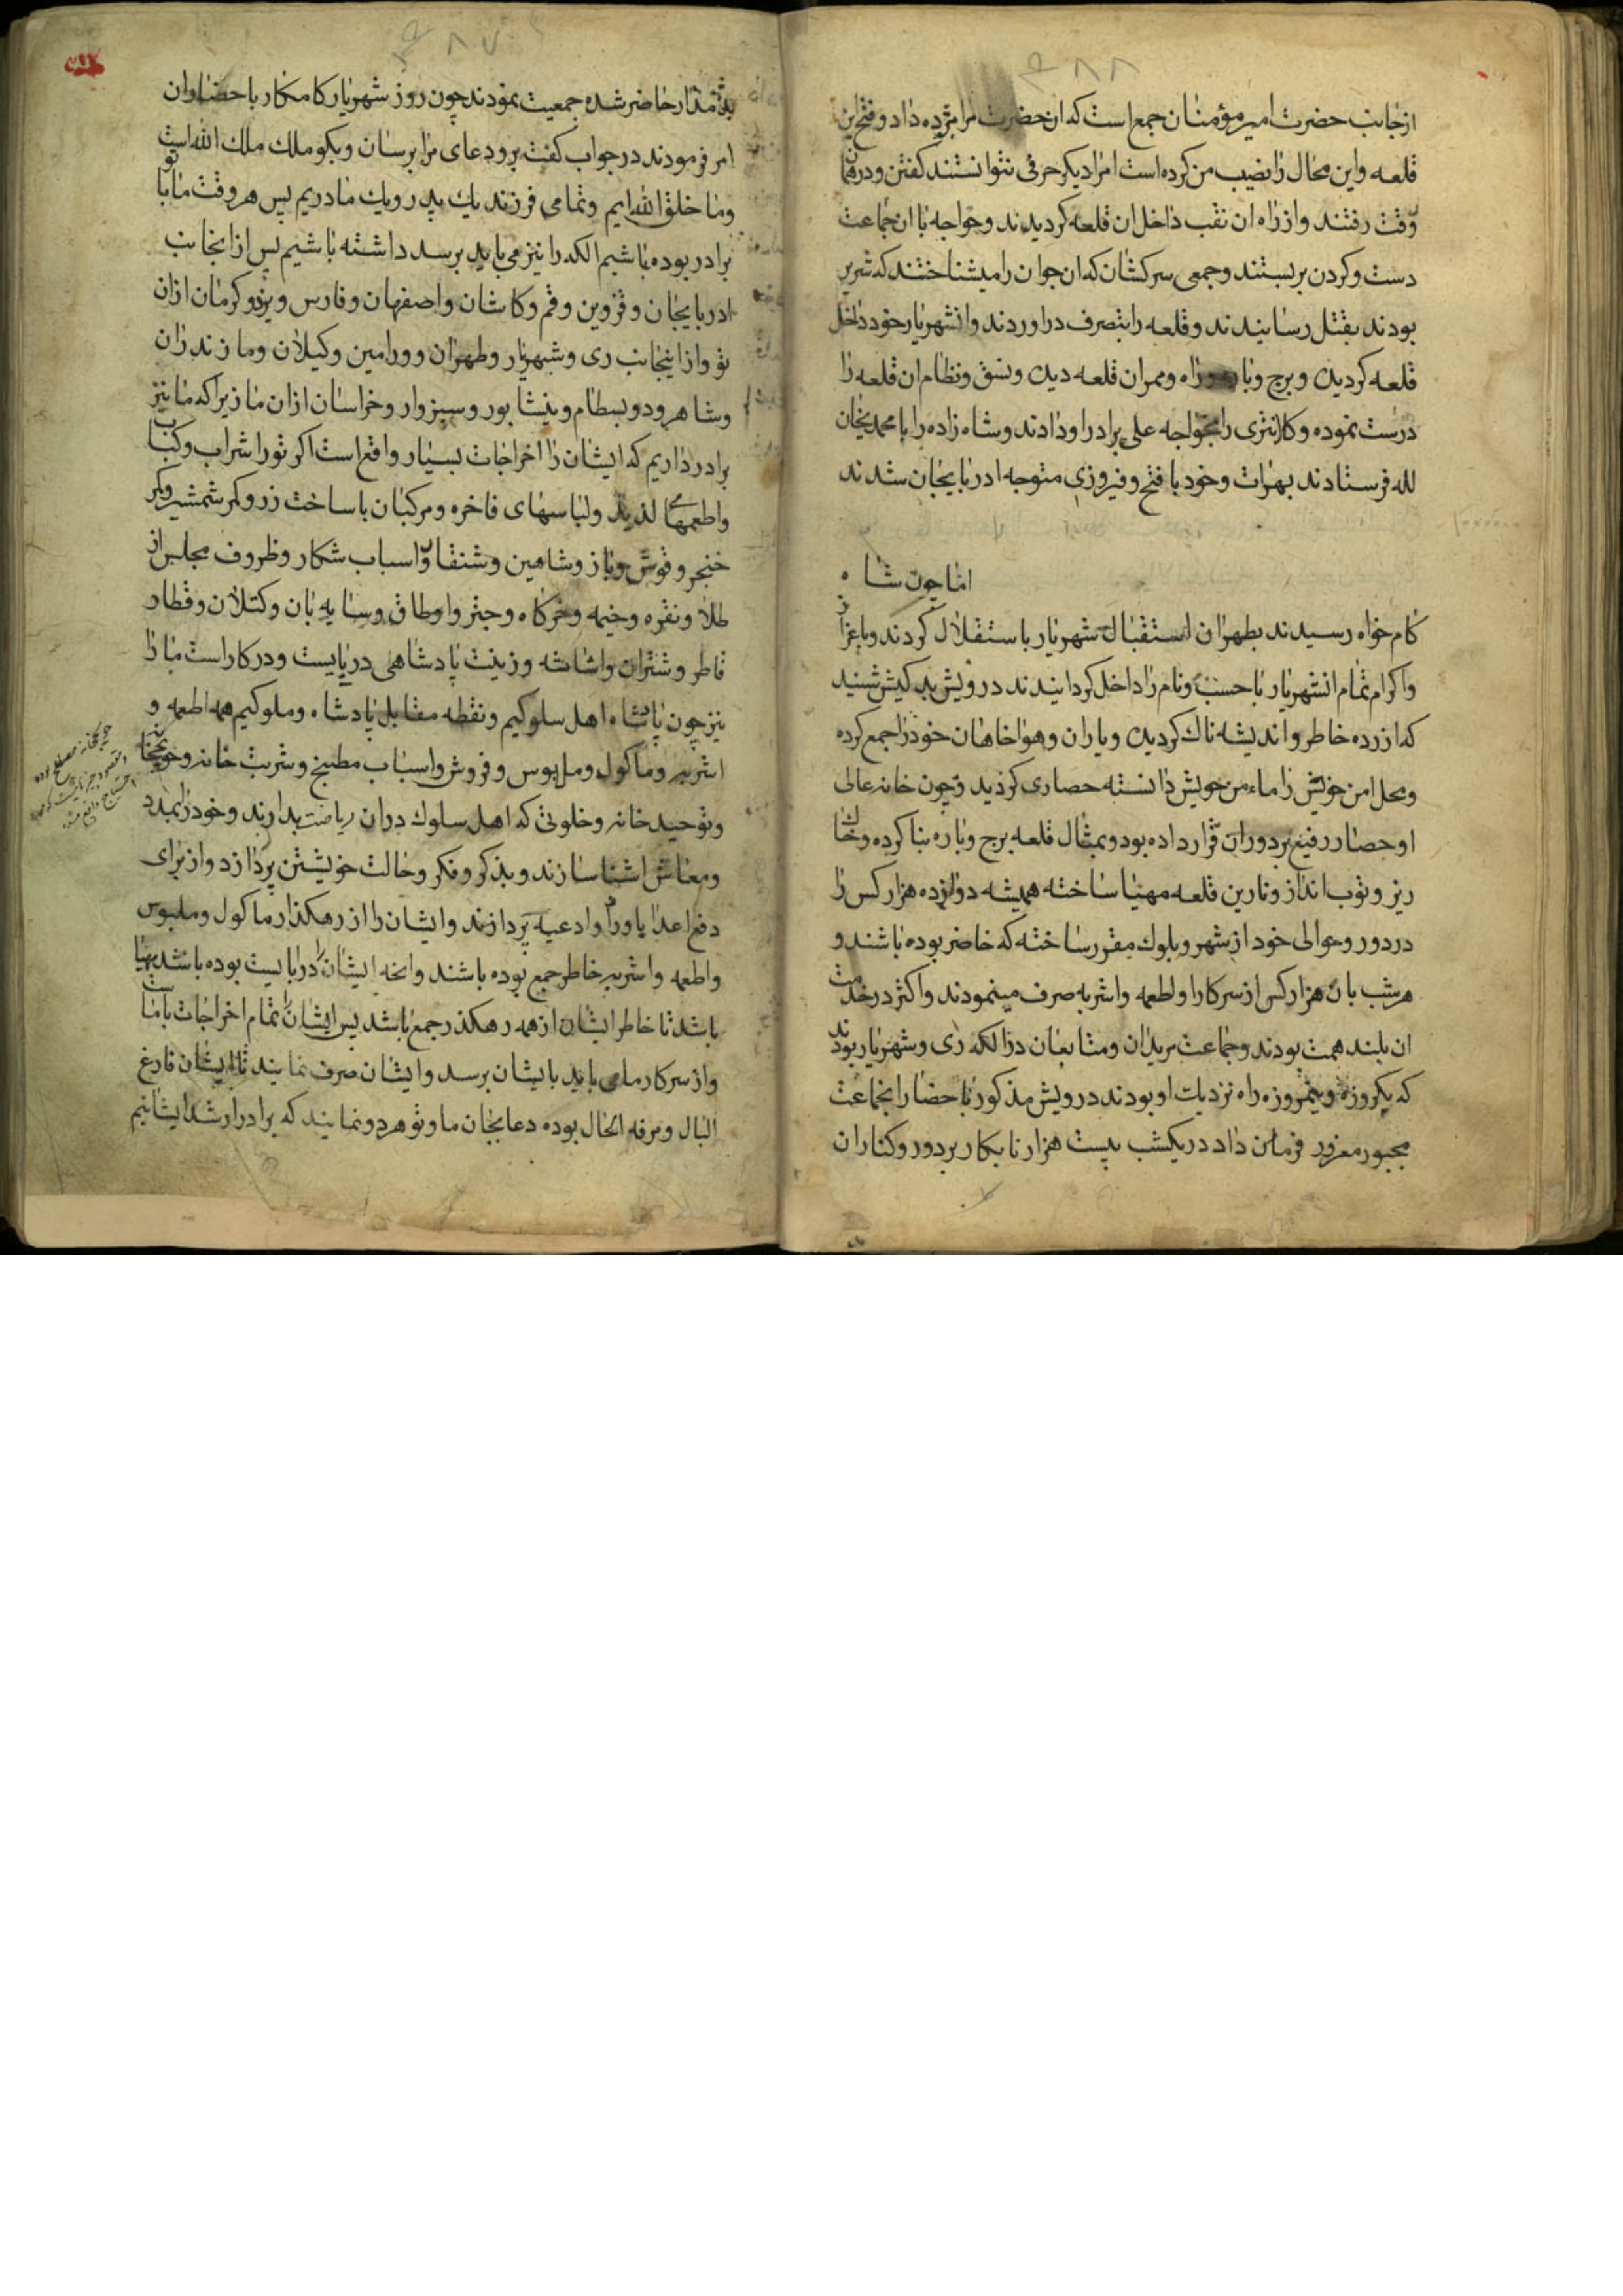 ۴۸۸
ازجانب حضرت امیر مؤمنان جمع است که ان حضرت مرا مژده داد و فتح این
قلعه و این محال را نصیب من کرده است امرا دیکر حرفی نتوانستند کفتن و در همان
وقت رفتند و از راه ان نقب داخل ان قلعه کردیدند و خواجه با ان جماعت
دست و کردن بربستند و جمعی سرکشان که ان جوان را میشناختند که شریر
بودند بقتل رسانیدند و قلعه را بتصرف دراوردند و انشهریار خود داخل
قلعه کردیده و برج و باره و راه و ممران قلعه دیده و نسق و نظام ان قلعه را
درست نموده و کلانتری را بخواجه علی برادر او دادند و شاه زاده را با محمدیخان
لله فرستادند بهرات و خود با فتح و فیروزی متوجه ادربایجان شدند
اما چون شاه
کام خواه رسیدند بطهران استقبال شهریار باستقلال کردند و باعزاز
و اکرام تمام انشهریار با حسب و نام را داخل کردانیدند درویش بد کیش شنید
که ازرده خاطر و اندیشه ناک کردیده و یاران و هواخاهان خود را جمع کرده
و محل امن خویش را مامن خویش دانسته حصاری کردید و چون خانه عالی
او حصار رفیع بر دوران قرار داده بود و بمثال قلعه برج و باره بنا کرده و خاک
ریز و توب انداز و نارین قلعه مهیا ساخته همیشه دوازده هزار کس را
در دور و حوالی خود از شهر و بلوک مقرر ساخته که حاضر بوده باشند و
هر شب بان هزار کس از سرکار او اطعمه و اشربه صرف مینمودند و اکثر در خدمت
ان بلند همت بودند و جماعت مریدان و متابعان در الکه ری و شهریار بودند
که یکروزه و نیمروزه راه نزدیک او بودند درویش مذکور باحضار انجماعت
مجبور مغرور فرمان داد در یکشب بیست هزار نابکار بر دور و کنار ان
۴۸۷
بد مدار حاضر شده جمعیت نمودند چون روز شهریار کامکار باحضار ان
امر فرمودند در جواب کفت برو دعای مرا برسان و بکو ملک ملک الله است
و ما خلق الله ایم و تمامی فرزند یک پدر و یک مادریم پس هر وقت ما با تو
برادر بوده باشیم الکه را نیز می باید برسد داشته باشیم پس از انجانب
ادربایجان و قزوین و قم و کاشان و اصفهان و فارس و یزد و کرمان از ان
تو و از اینجانب ری و شهریار و طهران و ورامین و کیلان و مازندران
و شاهرود و بسطام و نیشابور و سبزوار و خراسان از ان ما زیرا که ما نیز
برادر داریم که ایشان را اخراجات بسیار واقع است اکر تو را شراب و کباب
و اطعمهای لذیذ و لباسهای فاخره و مرکبان با ساخت زر و کمر شمشیر و کمر
خنجر و قوش و باز و شاهین و شنقار و اسباب شکار و ظروف مجلس از
طلا و نقره و خیمه و خرکاه و چتر و اوطاق و سایه بان و کتلان و قطار
قاطر و شتران و اثاثه و زینت پادشاهی دربایست و در کار است ما را
نیز چون پادشاه اهل سلوکیم و نقطه مقابل پادشاه و ملوکیم همه اطعمه و
اشربه و ماکول و ملبوس و فروش و اسباب مطبخ و شربت خانه و حویجخانه
و توحید خانه و خلوتی که اهل سلوک دران ریاضت بدارند و خود را بمدد
و معاش اشنا سازند و بذکر و فکر و حالت خویشتن پردازد و از برای
دفع اعدا یا وراد و ادعیه پردازند و ایشان را از رهکذار ماکول و ملبوس
و اطعمه و اشربه خاطر جمع بوده باشند و انچه ایشان را دربایست بوده باشد مهیا
باشد تا خاطر ایشان از همه رهکذر جمع باشد پس ایشان را تمام اخراجات با ماست
و از سرکار ما می باید بایشان برسد و ایشان صرف نمایند تا ایشان فارغ
البال و مرفه الحال بوده دعا بجان ما و تو هر دو نمایند که برادر ارشد ایشانیم